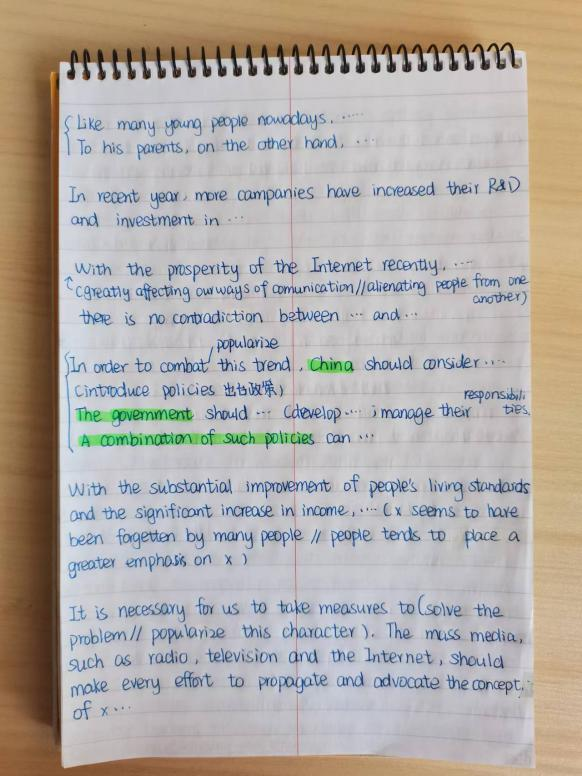 Like many young people nowadays, ······
To his parents, on the other hand, ···
In recent year, more campanies have increased their R&D
and investment in ···
With the prosperity of the Internet recently, ····
(greatly affecting our ways of comunication//alienating people from one
another)
there is no contradiction between ··· and ···
popularize
In order to combat this trend, China should consider ····
(introduce policies 出台政策)
responsibili
The government should ··· (develop ··· ; manage their ties.
A combination of such policies can ···
With the substantial improvement of people's living standards
and the significant increase in income, ···· (x seems to have
been forgetten by many people // people tends to place a
greater emphasis on x)
It is necessary for us to take measures to (solve the
problem // popularize this character). The mass media,
such as radio, television and the Internet, should
make every effort to propagate and advocate the concept
of x ···